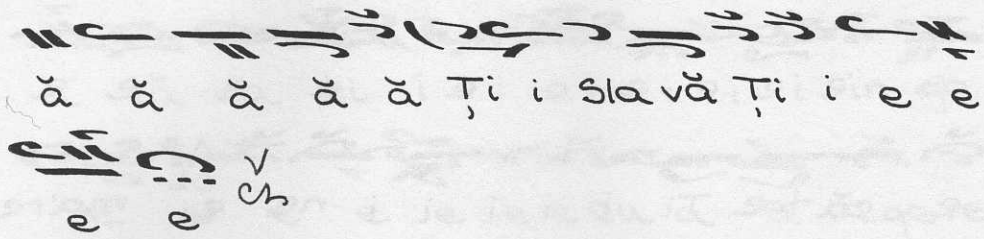 ă ă ă ă ă Ți i Sla vă Ți i e e
e e